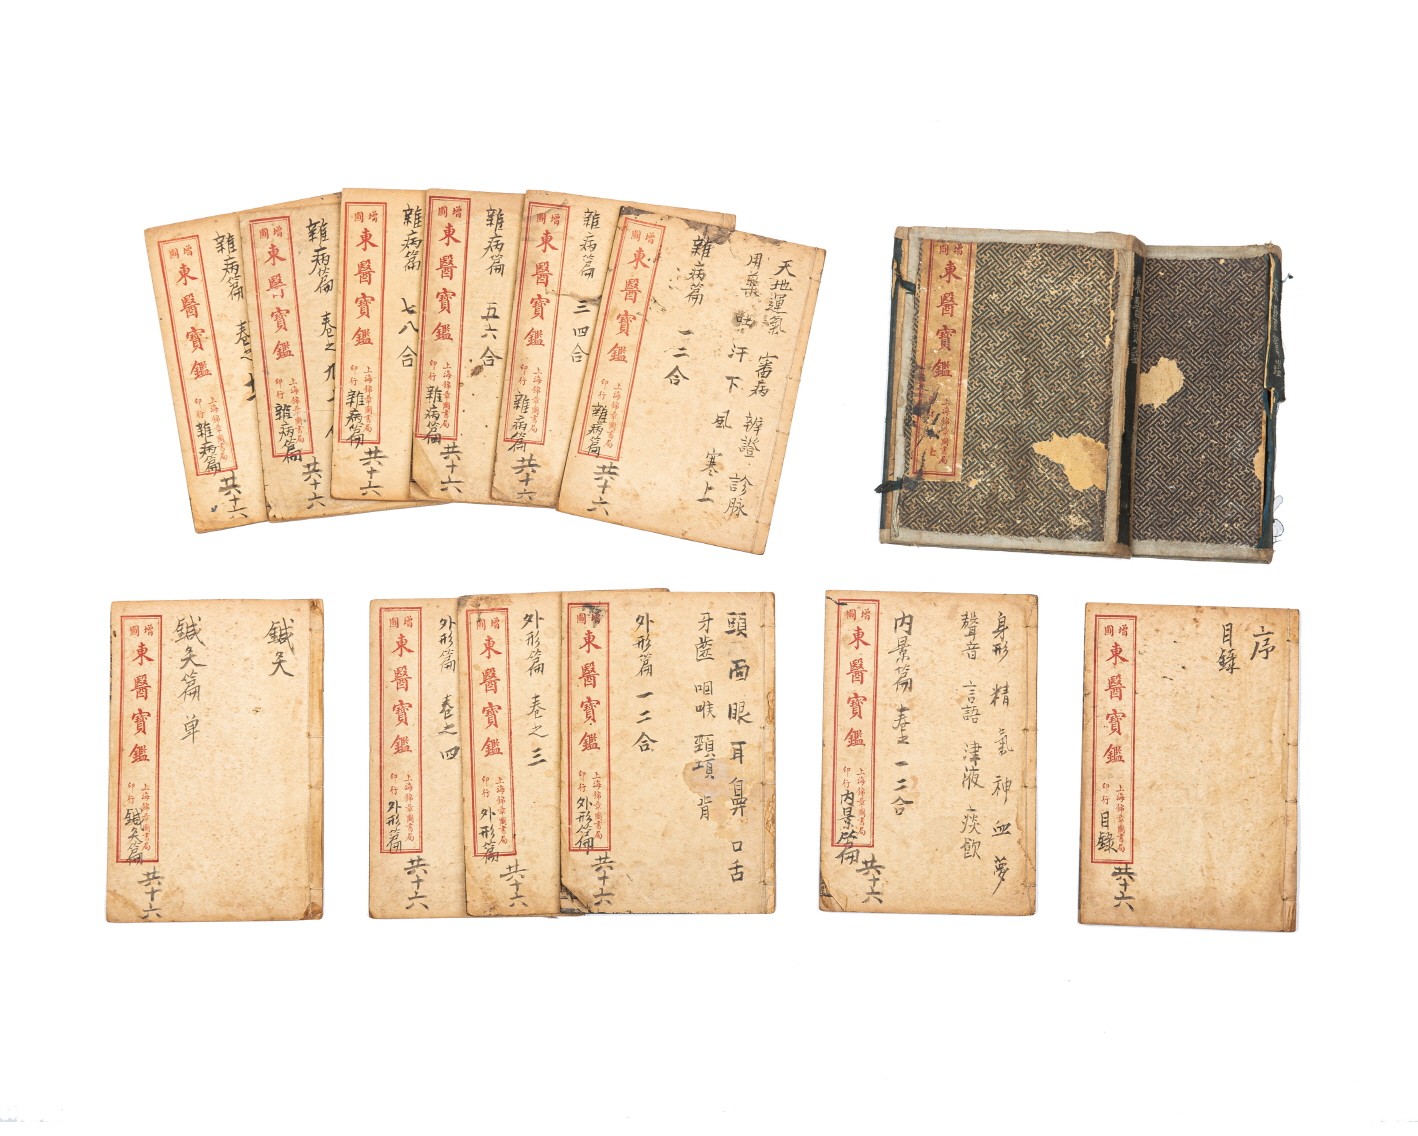 增圖
東醫寶鑑
上海錦章圖書局
印行
雜病篇
共十六
雜病篇
增圖
東醫寶鑑
上海錦章圖書局
印行
雜病篇
共十六
雜病篇
增圖
東醫寶鑑
上海錦章圖書局
印行
雜病篇
共十六
雜病篇 七八合
增圖
東醫寶鑑
上海錦章圖書局
印行
雜病篇
共十六
雜病篇 五六合
增圖
東醫寶鑑
上海錦章圖書局
印行
雜病篇
共十六
雜病篇 三四合
增圖
東醫寶鑑
上海錦章圖書局
印行
雜病篇
共十六
天地運氣 審病 辨證 診脉
用藥 吐 汗 下 風 寒上
雜病篇 一二合
增圖
東醫寶鑑
增圖
東醫寶鑑
上海錦章圖書局
印行
鍼灸篇
共十六
鍼灸
鍼灸篇 单
增圖
東醫寶鑑
上海錦章圖書局
印行
外形篇
共十六
外形篇 卷之四
增圖
東醫寶鑑
上海錦章圖書局
印行
外形篇
共十六
外形篇 卷之三
增圖
東醫寶鑑
上海錦章圖書局
印行
外形篇
共十六
頭 面 眼 耳 鼻 口舌
牙齒 咽喉 頸項 背
外形篇 一二合
增圖
東醫寶鑑
上海錦章圖書局
印行
内景篇
共十六
身形 精 氣 神 血 夢
聲音 言語 津液 痰飲
内景篇 卷之一二合
增圖
東醫寶鑑
上海錦章圖書局
印行
目錄
共十六
序
目錄